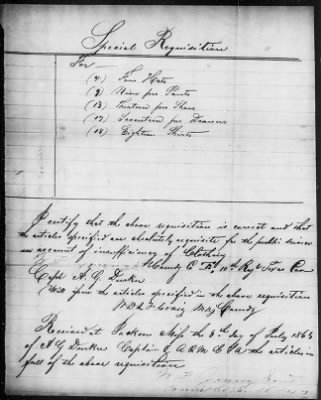 Special Requisition
For
(4) Four Hats
(9) Nine prs Pants
(13) Thirteen prs Shoes
(17) Seventeen prs Drawers
(18) Eighteen Shirts
I certify that the above requisition is correct and that
the articles specified are absolutely requisite for the public service
on account of insufficiency of Clothing
Comdg Co 10th Regt Texas Cav
Capt A. G.
Will issue the articles specified in the above requisition
Craig Maj Comdg
Received at Jackson Miss the 3d day of July 1863
of A G Captain & A Q M C S A the articles in
full of the above requisition